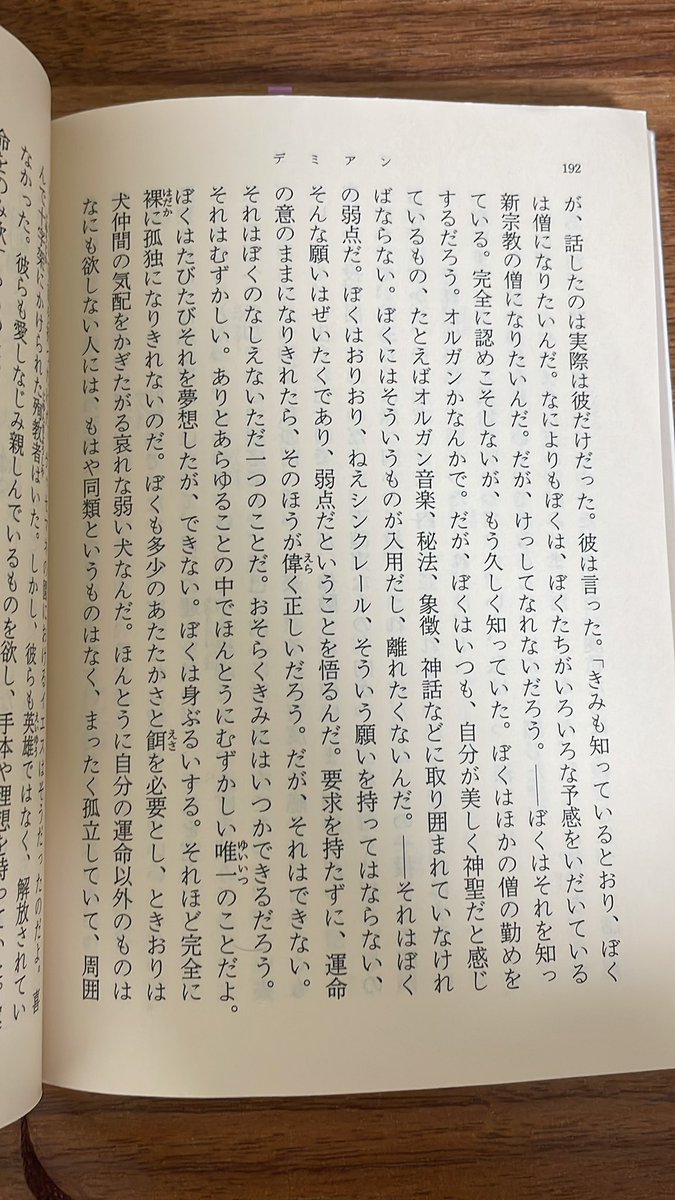 192
デミアン
が、話したのは実際は彼だけだった。彼は言った。「きみも知っているとおり、ぼく
は僧になりたいんだ。なによりもぼくは、ぼくたちがいろいろな予感をいだいている
新宗教の僧になりたいんだ。だが、けっしてなれないだろう。――ぼくはそれを知っ
ている。完全に認めこそしないが、もう久しく知っていた。ぼくはほかの僧の勤めを
するだろう。オルガンかなんかで。だが、ぼくはいつも、自分が美しく神聖だと感じ
ているもの、たとえばオルガン音楽、秘法、象徴、神話などに取り囲まれていなけれ
ばならない。ぼくにはそういうものが入用だし、離れたくないんだ。――それはぼく
の弱点だ。ぼくはおりおり、ねえシンクレール、そういう願いを持ってはならない、
そんな願いはぜいたくであり、弱点だということを悟るんだ。要求を持たずに、運命
の意のままになりきれたら、そのほうが偉く正しいだろう。だが、それはできない。
それはぼくのなしえないただ一つのことだ。おそらくきみにはいつかできるだろう。
それはむずかしい。ありとあらゆることの中でほんとうにむずかしい唯一のことだよ。
ぼくはたびたびそれを夢想したが、できない。ぼくは身ぶるいする。それほど完全に
裸に孤独になりきれないのだ。ぼくも多少のあたたかさと餌を必要とし、ときおりは
犬仲間の気配をかぎたがる哀れな弱い犬なんだ。ほんとうに自分の運命以外のものは
なにも欲しない人には、もはや同類というものはなく、まったく孤立していて、周囲
におけるイエスはそうだったのだよ。喜
んで十字架にかけられた殉教者はいた。しかし、彼らも英雄ではなく、解放されてい
なかった。彼らも愛しなじみ親しんでいるものを欲し、手本や理想を持っていた